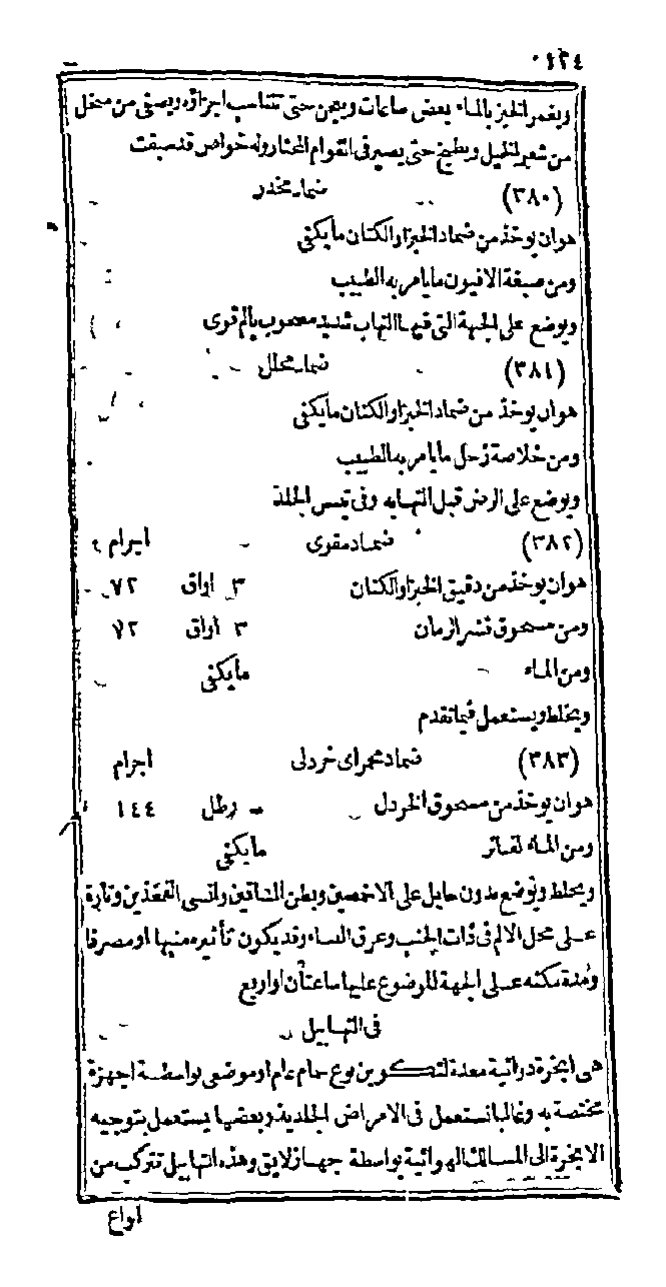 ٤٢٤
ويغمر الخبز بالماء بعض ساعات ويعجن حتى تتناسب اجزاؤه ويصفى من منخل
من شعر الخيل ويطبخ حتى يصير فى القوام المختار وله خواص قد سبقت
(٣٨٠) ضماد مخدر
هو ان يوخذ من ضماد الخبز او الكتان ما يكفى
ومن صبغة الافيون ما يامر به الطبيب
ويوضع على الجهة التى فيها التهاب شديد مصحوب بالم قوى
(٣٨١) ضماد محلل
هو ان يوخذ من ضماد الخبز او الكتان ما يكفى
ومن خلاصة زحل ما يامر به الطبيب
ويوضع على الرض قبل التهابه وفى تيبس الجلد
(٣٨٢) ضماد مقوى اجرام
هو ان يوخذ من دقيق الخبز او الكتان ٣ اواق ٧٢
ومن مسحوق قشر الرمان ٣ اواق ٧٢
ومن الماء ما يكفى
ويخلط ويستعمل فيما تقدم
(٣٨٣) ضماد محمر اى خردلى اجرام
هو ان يوخذ من مسحوق الخردل رطل ١٤٤
ومن الماء الفاتر ما يكفى
ويخلط ويوضع بدون حايل على الاخمصين وبطن الساقين وانسى الفخذين وتارة
على محل الالم فى ذات الجنب وعرق النساء وقد يكون تأثيره منبها او مصرفا
ومدة مكثه على الجهة الموضوع عليها ساعتان او اربع
فى التهابيل
هى ابخرة دوائية معدة لتكوين نوع حمام عام او موضعى بواسطة اجهزة
مختصة به وغالبا تستعمل فى الامراض الجلدية وبعضها يستعمل بتوجيه
الابخرة الى المسالك الهوائية بواسطة جهاز لايق وهذه التهابيل تتركب من
انواع